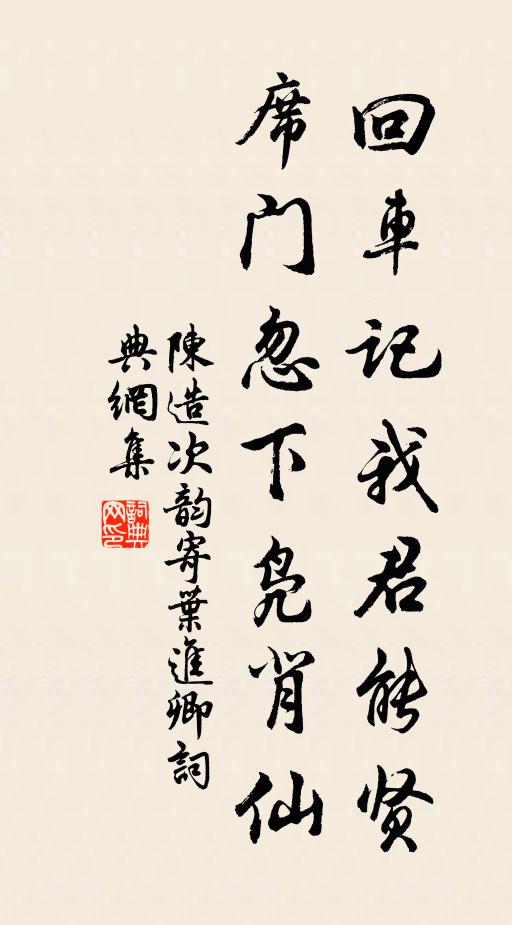 回車記我君能贤
席门忽下凫背仙
陳造次韵寄葉進卿詞
典網集
詞典網印